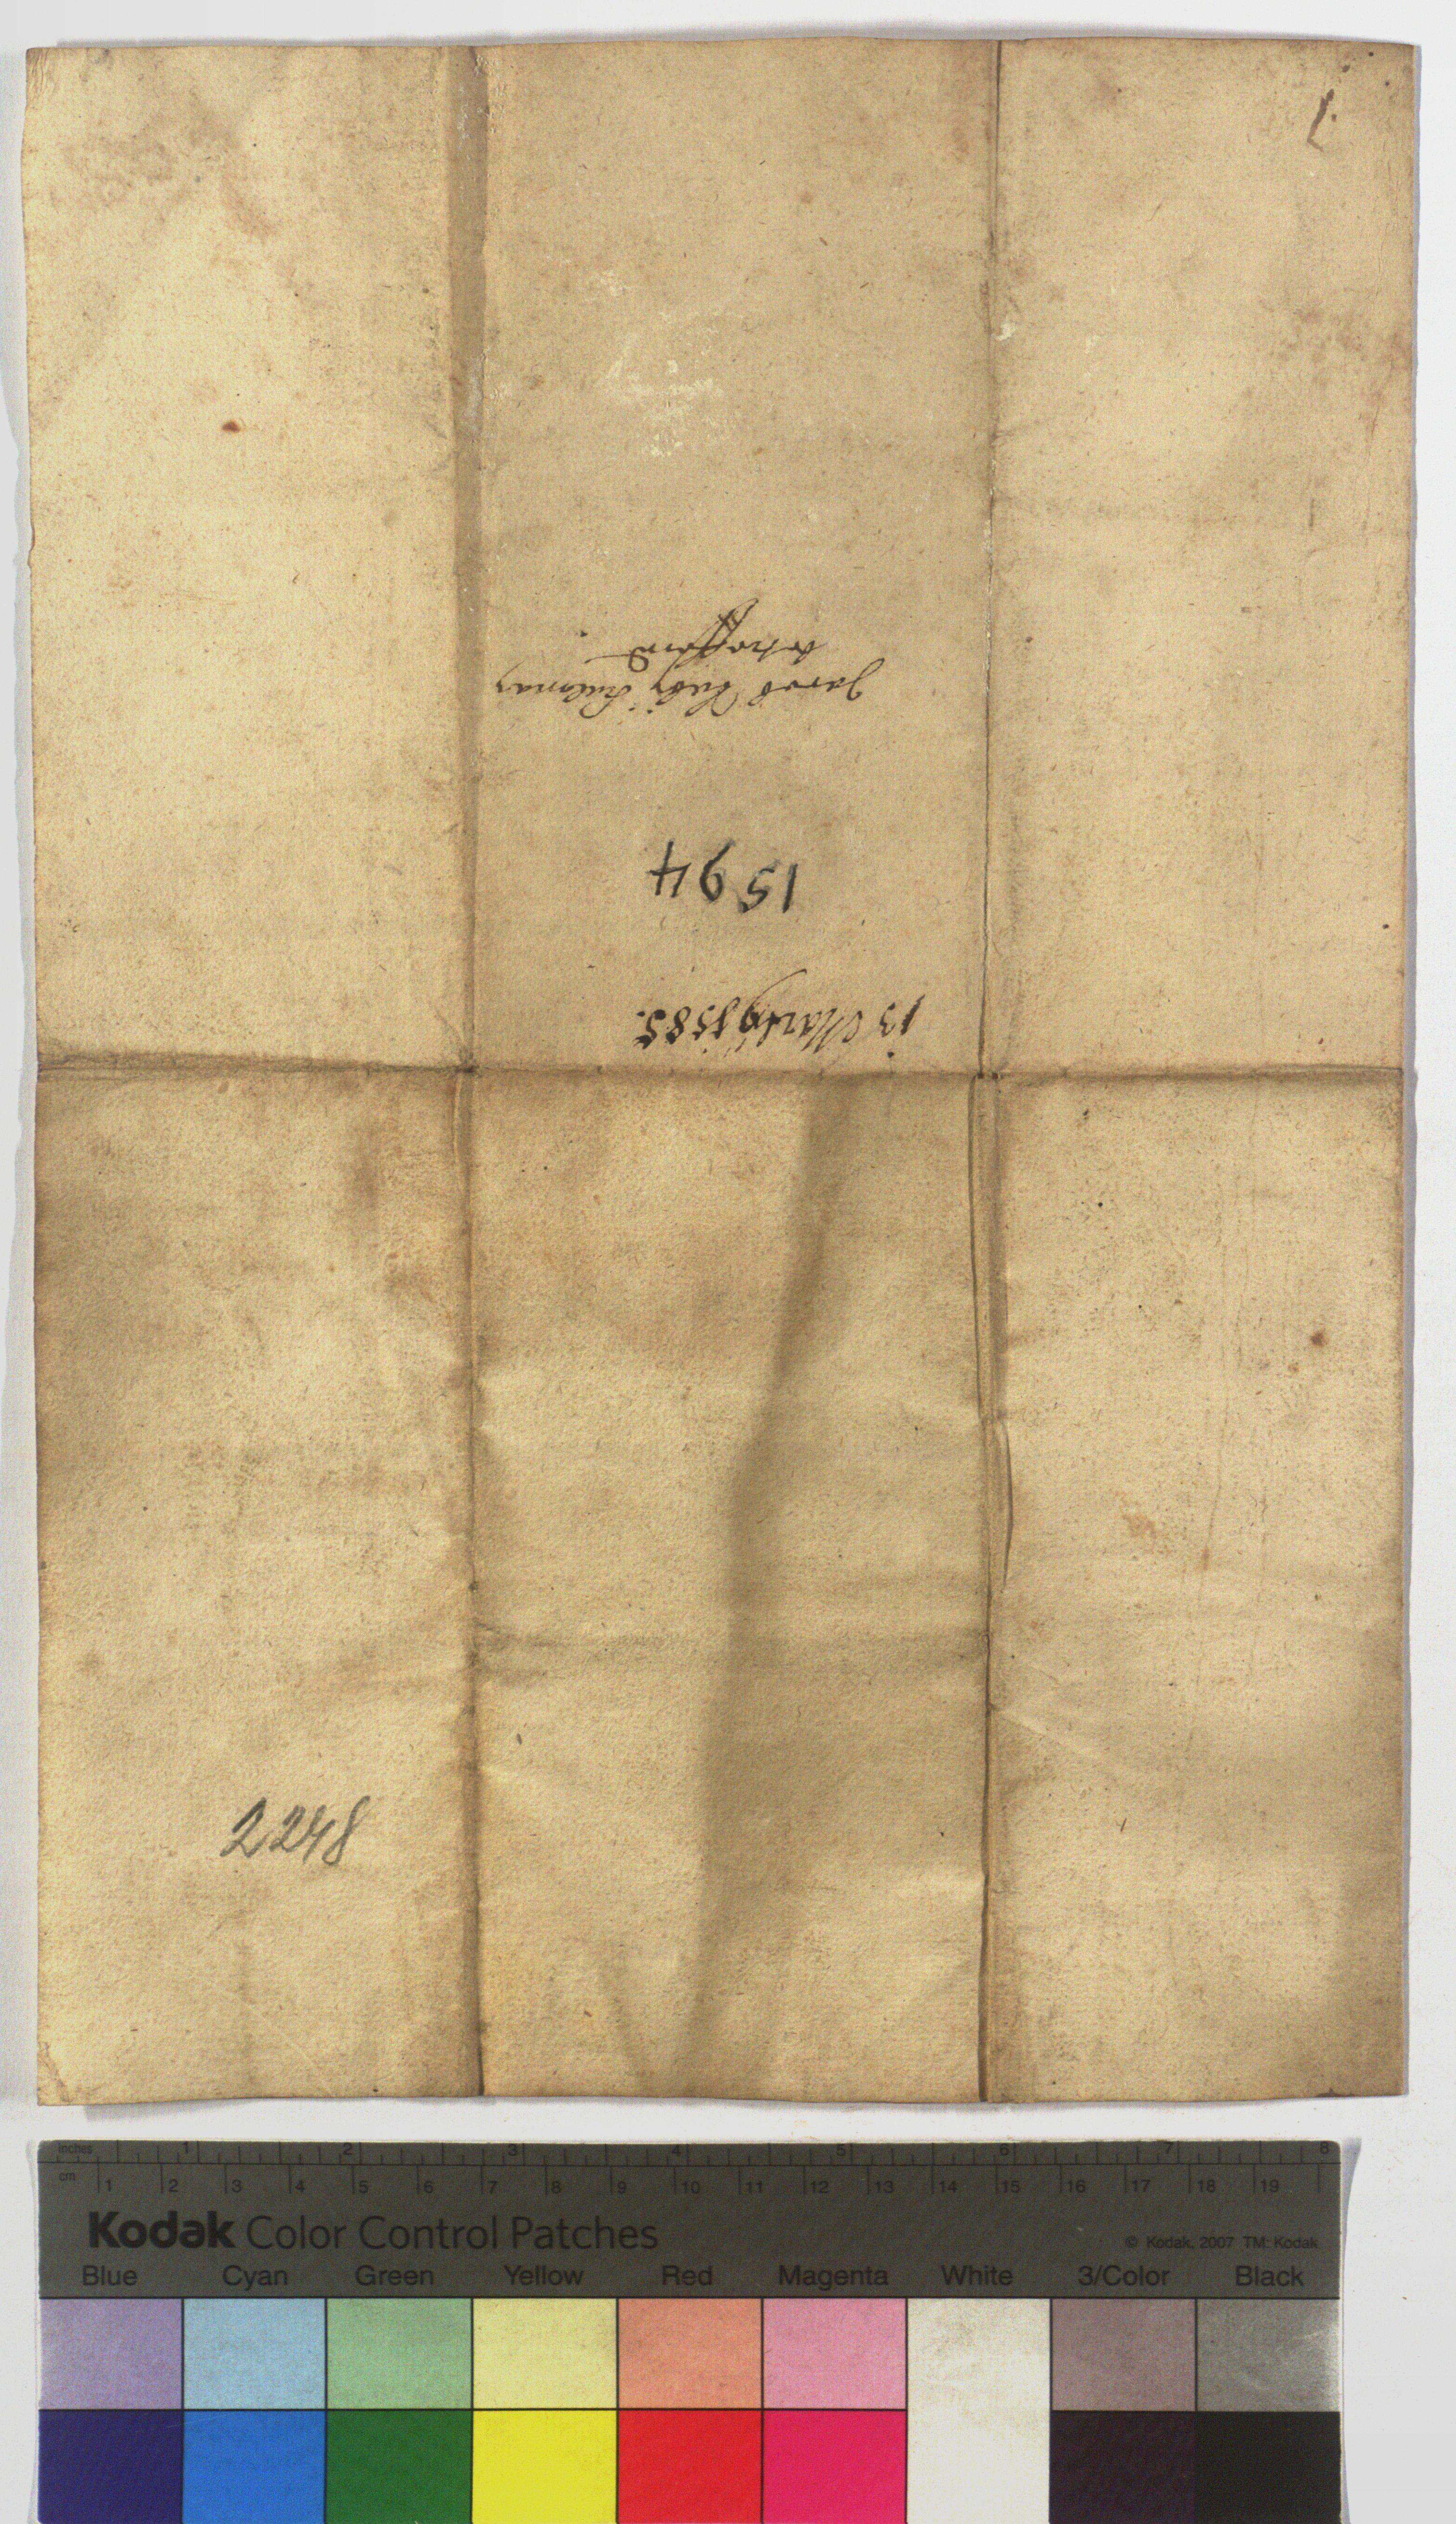 13 Martij 1585.
1594
Jacob
betreffend
2248
inches 1 2 3 4 5 6 7 8
cm 1 2 3 4 5 6 7 8 9 10 11 12 13 14 15 16 17 18 19
Kodak Color Control Patches
© Kodak, 2007 TM: Kodak
Blue Cyan Green Yellow Red Magenta White 3/Color Black